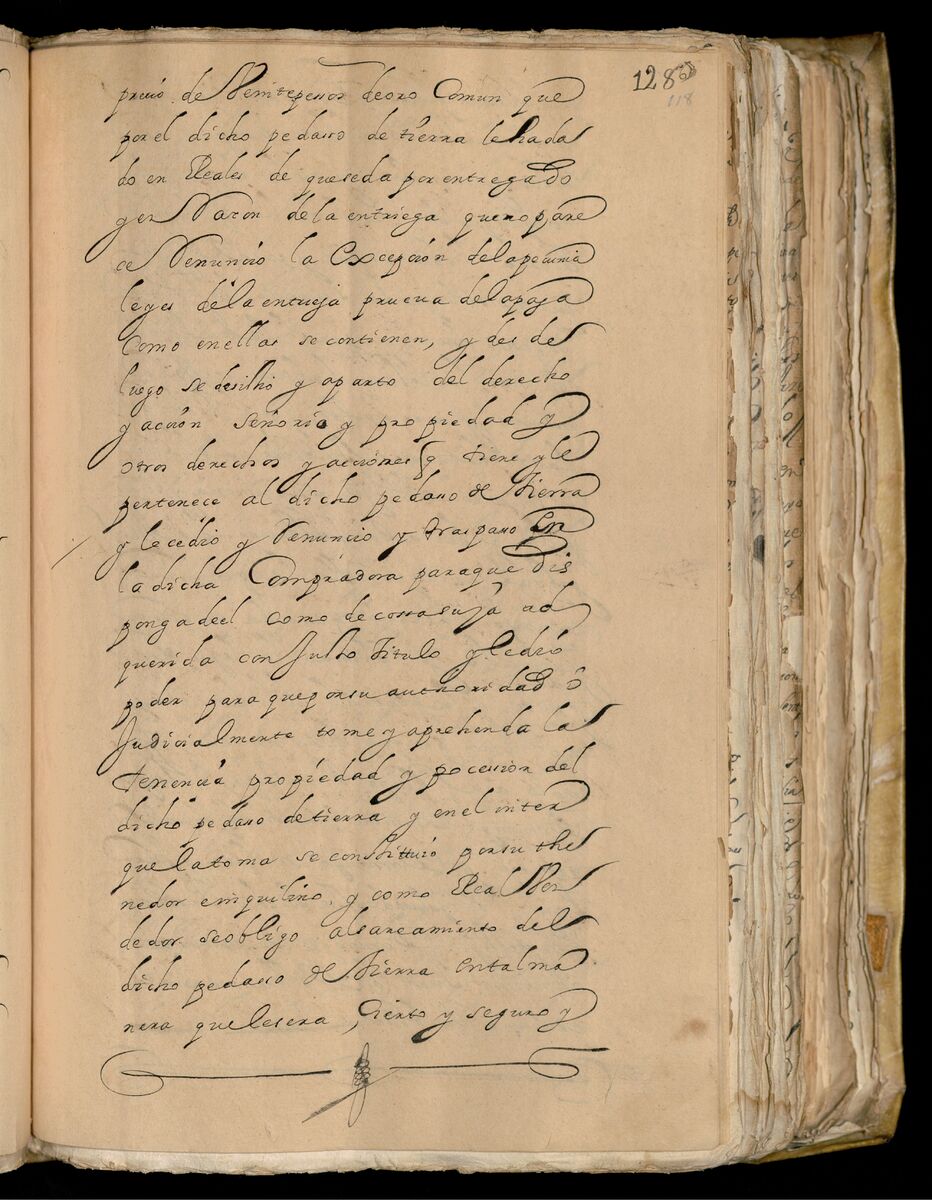 128
118
precio de Veintepessos deoro Comun que
porel dicho pedasso de tierra lehada
do en Reales de queseda porentregado
y en Razon dela entriega quenopare
ce Renuncio la Excepcion delapecunia
leyes dela entriega prueva delapaga
Como enellas se contienen, y desde
luego se desistio y aparto del derecho
y accion señorio y propiedad y
otros derechos y acciones q tiene y le
pertenece al dicho pedaso de tierra
y le cedio y Renuncio y traspaso En
la dicha Compradora paraque dis
ponga deel como de cossa suja ad
querida con Justo titulo y ledio
poder para queporsu authoridad o
Judicialmente tome y aprehenda la
tenencia propiedad y pocession del
dicho pedaso detierra y enel inter
quelatoma se constittuio porsu the
nedor einquilino, y como Real Ven
dedor seobligo alsaneamiento del
dicho pedasso de tierra entalma
nera quelesera Cierto y seguro y